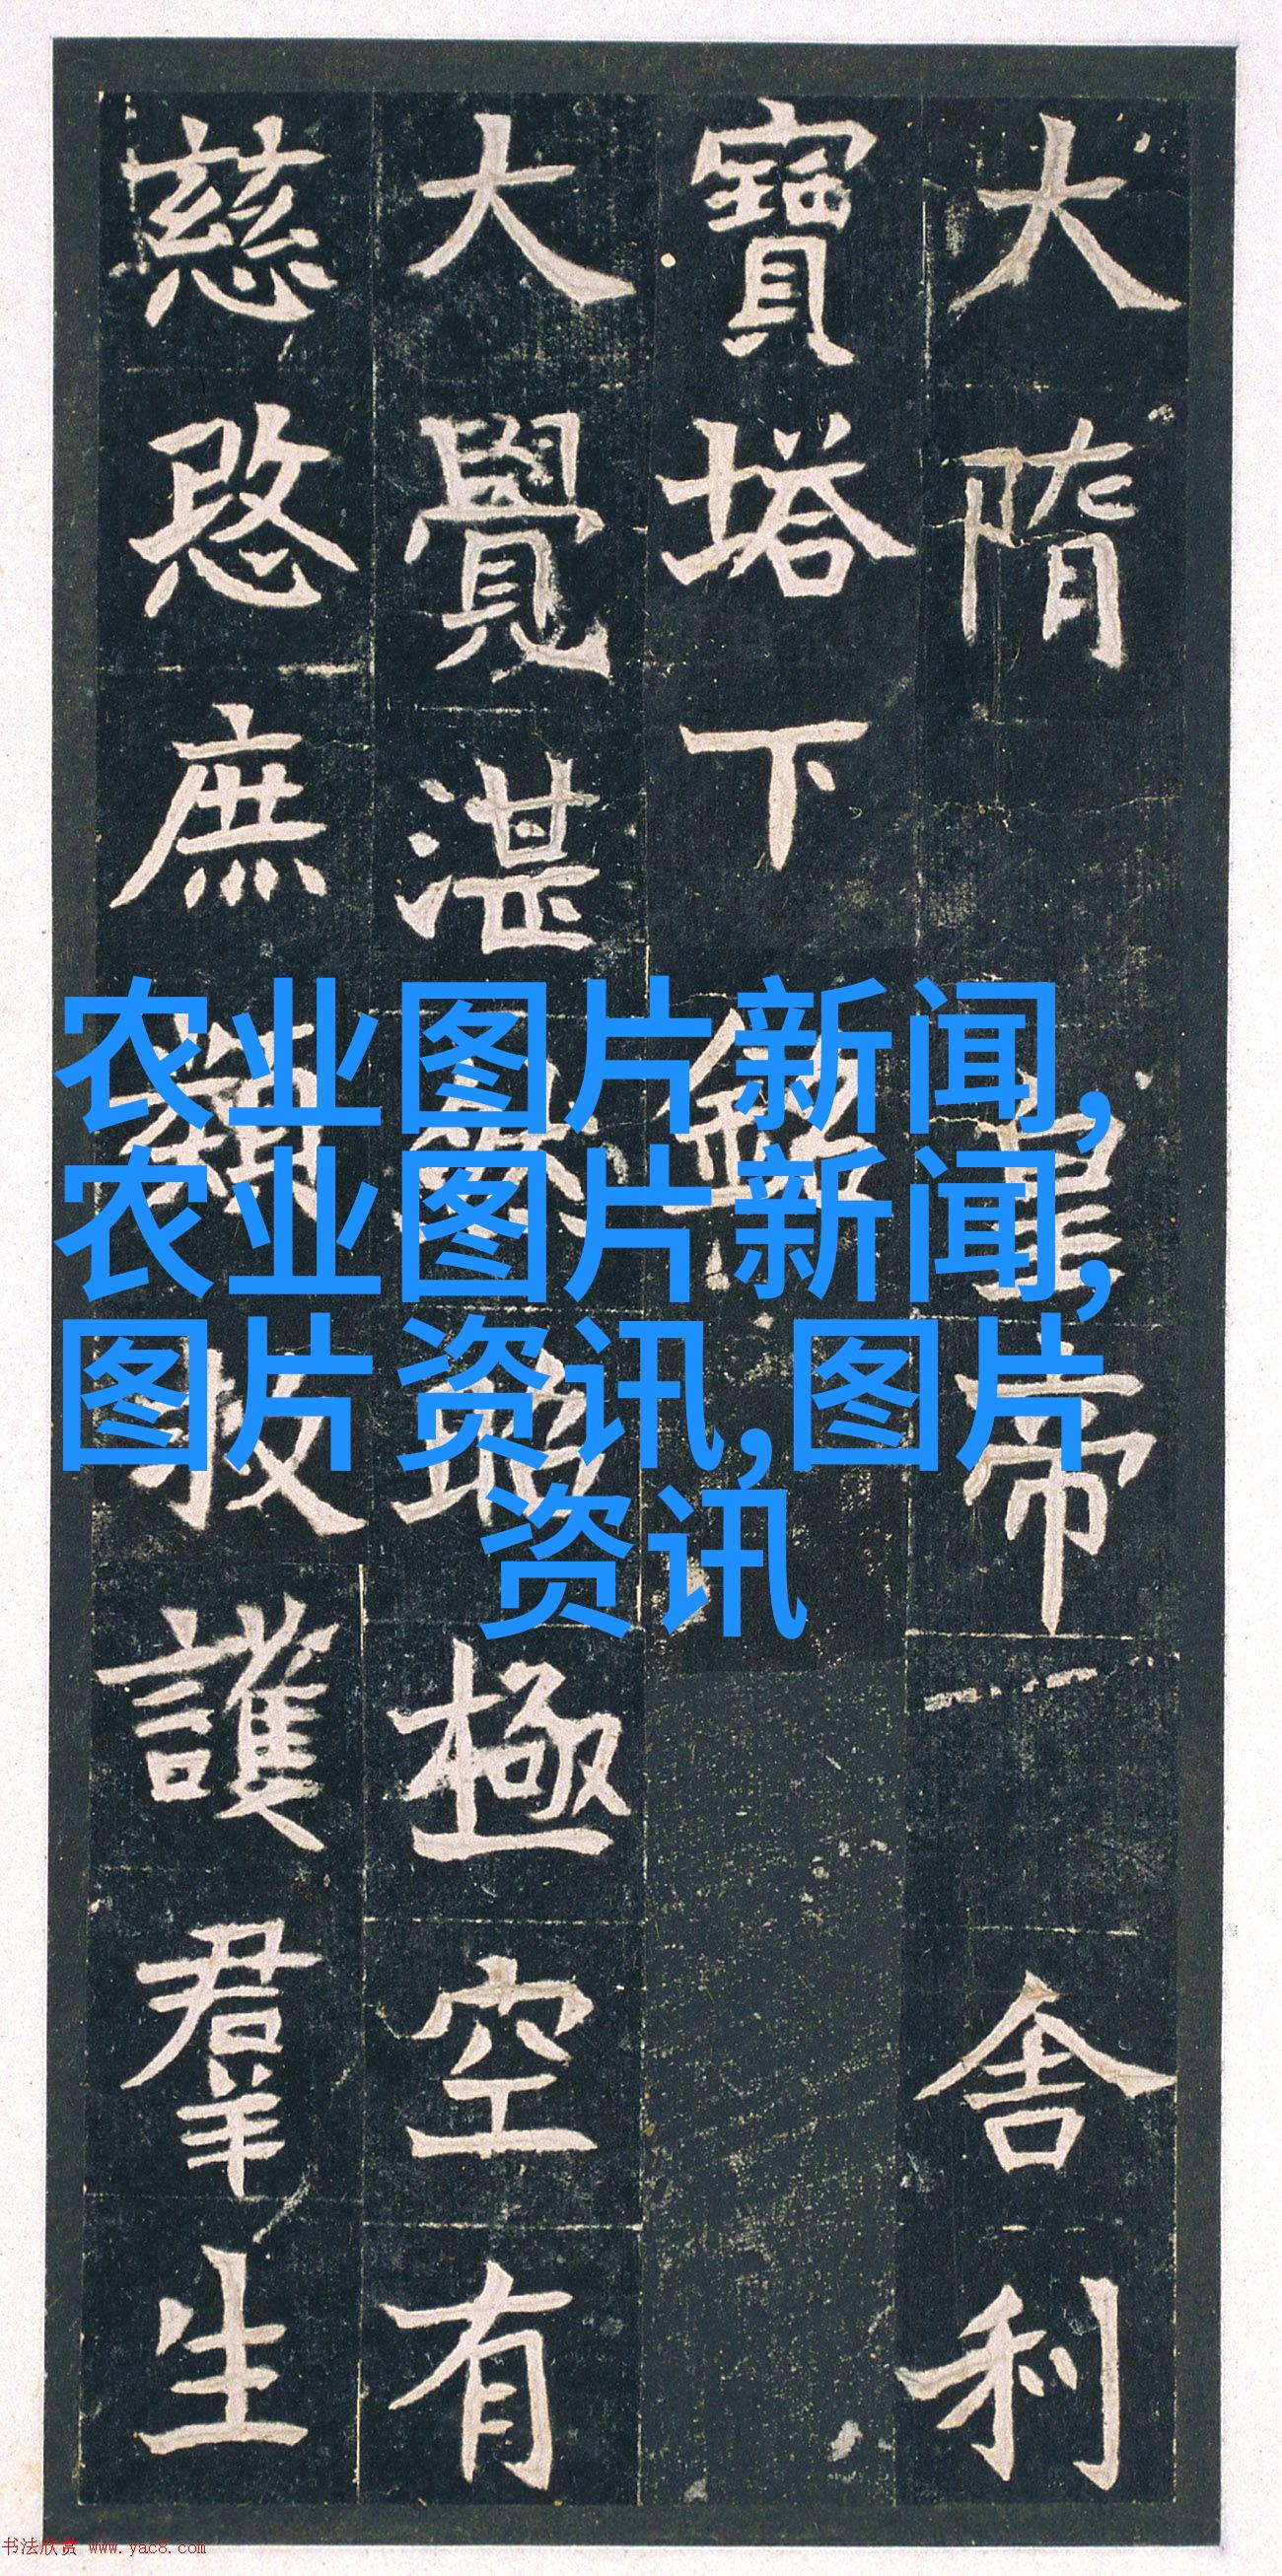 大隋皇帝舍利
寶塔下銘
大覺湛然昭極空有
慈愍庶類救護羣生
农业图片新闻,
农业图片新闻,
图片资讯,图片
资讯
书法欣赏 www.yac8.com